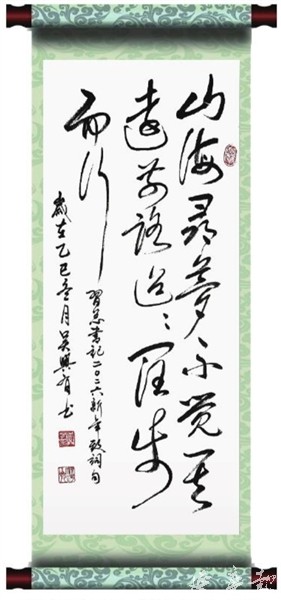 山海寻梦不觉其
远前路迢迢阔步
而行
習总書记二〇二六新年致词句
歲在乙巳冬月吴興有书